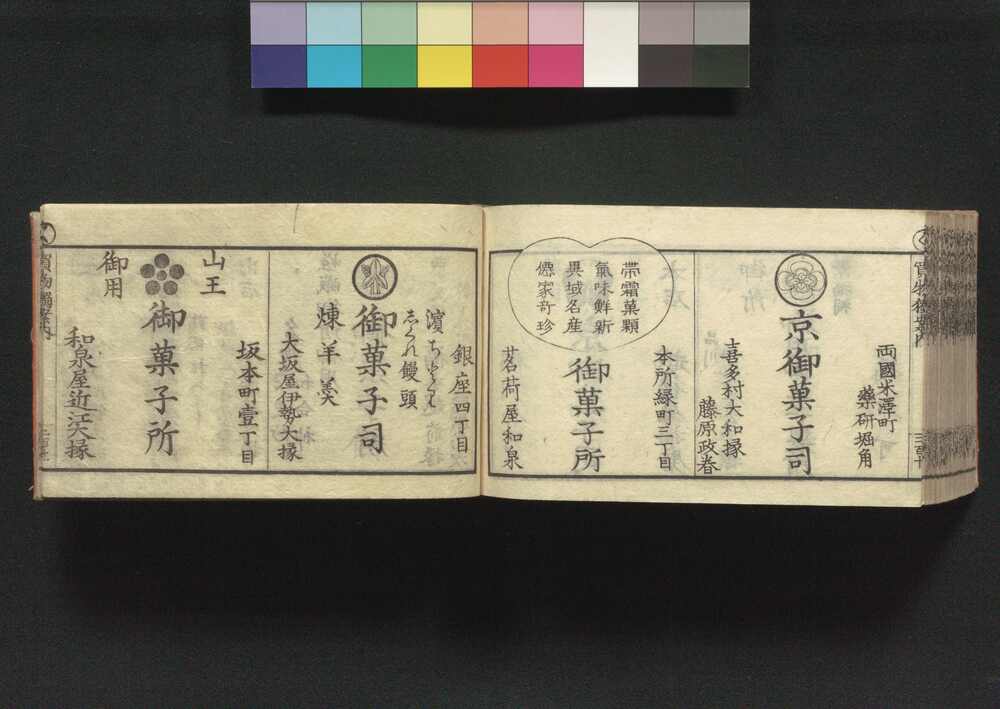 両國米澤町
藥研堀角
京御菓子司
喜多村大和掾
藤原政春
本所緑町三丁目
帯霜菓顆
氣味鮮新
異域名産
僊家奇珍
御菓子所
茗荷屋和泉
銀座四丁目
濵ちどり
しぐれ饅頭
御菓子司
煉羊羹
大坂屋伊勢大掾
坂本町壹丁目
山王
御用
御菓子所
和泉屋近江大掾